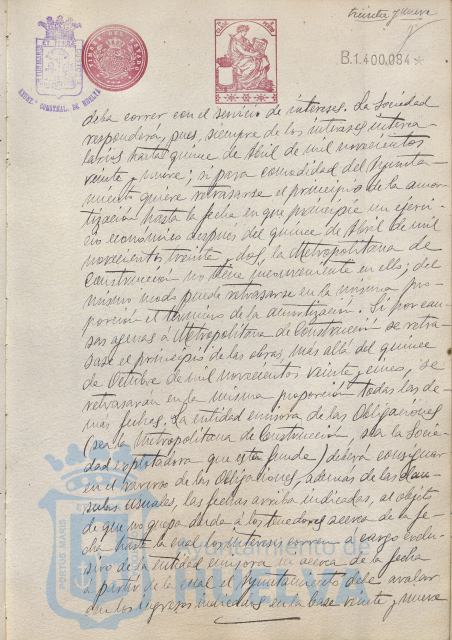 treinta y nueve
B.1.400.084*
PORTUS MARIS
ET TERRAE
AYUNt.º CONSTNAL. DE HUELVA
TIMBRE DEL ESTADO
deba correr con el servicio de intereses. La Sociedad
responderá, pues, siempre de los intereses interca-
larios hasta quince de Abril de mil novecientos
veinte y nueve; si para comodidad del Ayunta-
miento quiere retrasarse el principio de la amor-
tización hasta la fecha en que principie un ejerci-
cio económico después del quince de Abril de mil
novecientos treinta y dos, la Metropolitana de
Construcción no tiene inconveniente en ello; del
mismo modo puede retrasarse en la misma pro-
porción el término de la amortización. Si por cau-
sas agenas a Metropolitana de Construcción se retra-
sase el principio de las obras, mas allá del quince
de Octubre de mil novecientos veinte y cinco, se
retrasarán en la misma proporción todas las de-
más fechas. La entidad emisora de las Obligaciones
(sea la Metropolitana de Construcción, sea la Socie-
dad explotadora que esta funde) deberá consignar
en el reverso de las Obligaciones, además de las cláu-
sulas usuales, las fechas arriba indicadas, al objeto
de que no quepa duda a los tenedores acerca de la fe-
cha hasta la cual los intereses corren a cargo exclu-
sivo de la entidad emisora ni acerca de la fecha
a partir de la cual el Ayuntamiento debe avalar
con los ingresos indicados en la base veinte y nueve
PORTUS MARIS
Ayuntamiento de
HUELVA